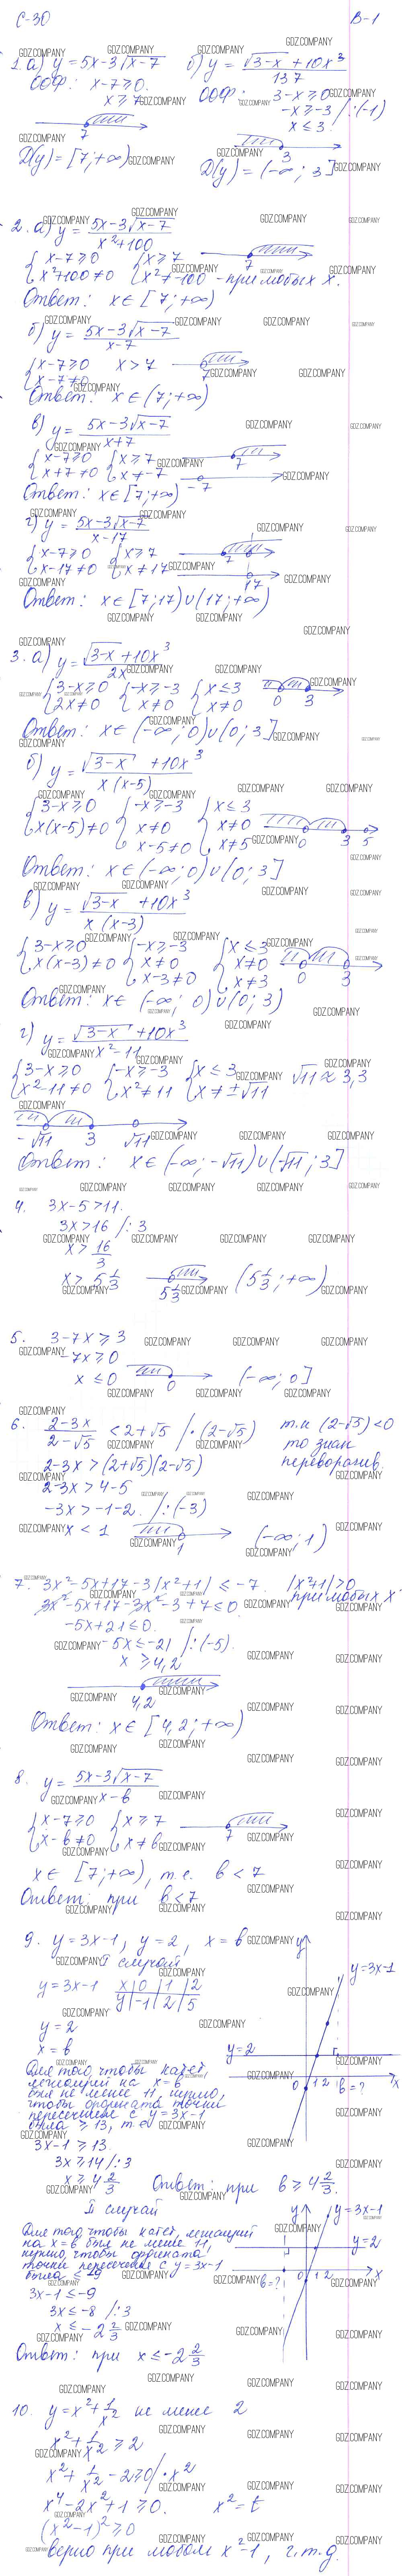 С-30 В-1
1. а) y = 5x-3√x-7 б) y = √3-x + 10x³ / 137
ООФ: x-7≥0. ООФ: 3-x≥0
x≥7 -x≥-3 /:(-1)
x≤3
7 3
D(y) = [7;+∞) D(y) = (-∞; 3]
2. а) y = 5x-3√x-7 / x²+100
{x-7≥0 {x≥7 7
{x²+100≠0 {x²≠-100 - при любых x.
Ответ: x∈[7;+∞)
б) y = 5x-3√x-7 / x-7
{x-7≥0 x>7 7
{x-7≠0
Ответ: x∈(7;+∞)
в) y = 5x-3√x-7 / x+7
{x-7≥0 {x≥7 7
{x+7≠0 {x≠-7 -7
Ответ: x∈[7;+∞)
г) y = 5x-3√x-7 / x-17
{x-7≥0 {x≥7 7
{x-17≠0 {x≠17 17
Ответ: x∈[7;17)∪(17;+∞)
3. а) y = √3-x + 10x³ / 2x
{3-x≥0 {-x≥-3 {x≤3
{2x≠0 {x≠0 {x≠0 0 3
Ответ: x∈(-∞;0)∪(0;3]
б) y = √3-x + 10x³ / x(x-5)
{3-x≥0 {-x≥-3 {x≤3
{x(x-5)≠0 {x≠0 {x≠0
x-5≠0 x≠5 0 3 5
Ответ: x∈(-∞;0)∪(0;3]
в) y = √3-x + 10x³ / x(x-3)
{3-x≥0 {-x≥-3 {x≤3
{x(x-3)≠0 {x≠0 {x≠0
x-3≠0 x≠3 0 3
Ответ: x∈(-∞;0)∪(0;3)
г) y = √3-x + 10x³ / x²-11
{3-x≥0 {-x≥-3 {x≤3 √11≈3,3
{x²-11≠0 {x²≠11 {x≠±√11
-√11 3 √11
Ответ: x∈(-∞;-√11)∪(-√11;3]
4. 3x-5>11.
3x>16 /:3
x>16/3
x>5 1/3 5 1/3 (5 1/3;+∞)
5. 3-7x≥3
-7x≥0
x≤0 0 (-∞;0]
6. 2-3x / 2-√5 <2+√5 /·(2-√5) т.к (2-√5)<0
то знак
2-3x>(2+√5)(2-√5) переворачив.
2-3x>4-5
-3x>-1-2. /:(-3)
x<1 1 (-∞;1)
7. 3x²-5x+17-3|x²+1|≤-7. |x²+1|>0
при любых x
3x²-5x+17-3x²-3+7≤0
-5x+21≤0.
-5x≤-21 /:(-5).
x≥4,2
4,2
Ответ: x∈[4,2;+∞)
8. y = 5x-3√x-7 / x-b
{x-7≥0 {x≥7
{x-b≠0 {x≠b 7
x∈[7;+∞), т.е. b<7
Ответ: при b<7
9. y=3x-1, y=2, x=b
I случай
y=3x-1 x 0 1 2
y -1 2 5
y=2
x=b
y y=3x-1
y=2
0 1 2 b=? x
Для того, чтобы катет,
лежащий на x=b
был не менее 11, нужно,
чтобы ордината точки
пересечения с y=3x-1
была ≥13, т.е
3x-1≥13
3x≥14 /:3
x≥4 2/3 Ответ: при b≥4 2/3.
II случай
Для того, чтобы катет, лежащий
на x=b был не менее 11,
нужно, чтобы ордината
точки пересечение с y=3x-1
была ≤-9
y y=3x-1
y=2
b=? 0 1 2 x
3x-1≤-9
3x≤-8 /:3
x≤-2 2/3
Ответ: при x≤-2 2/3
10. y=x²+1/x² не менее 2
x²+1/x²≥2
x²+1/x²-2≥0 /·x²
x⁴-2x²+1≥0. x²=t
(x²-1)²≥0
верно при любом x²-1, ч.т.д.
GDZ.COMPANY